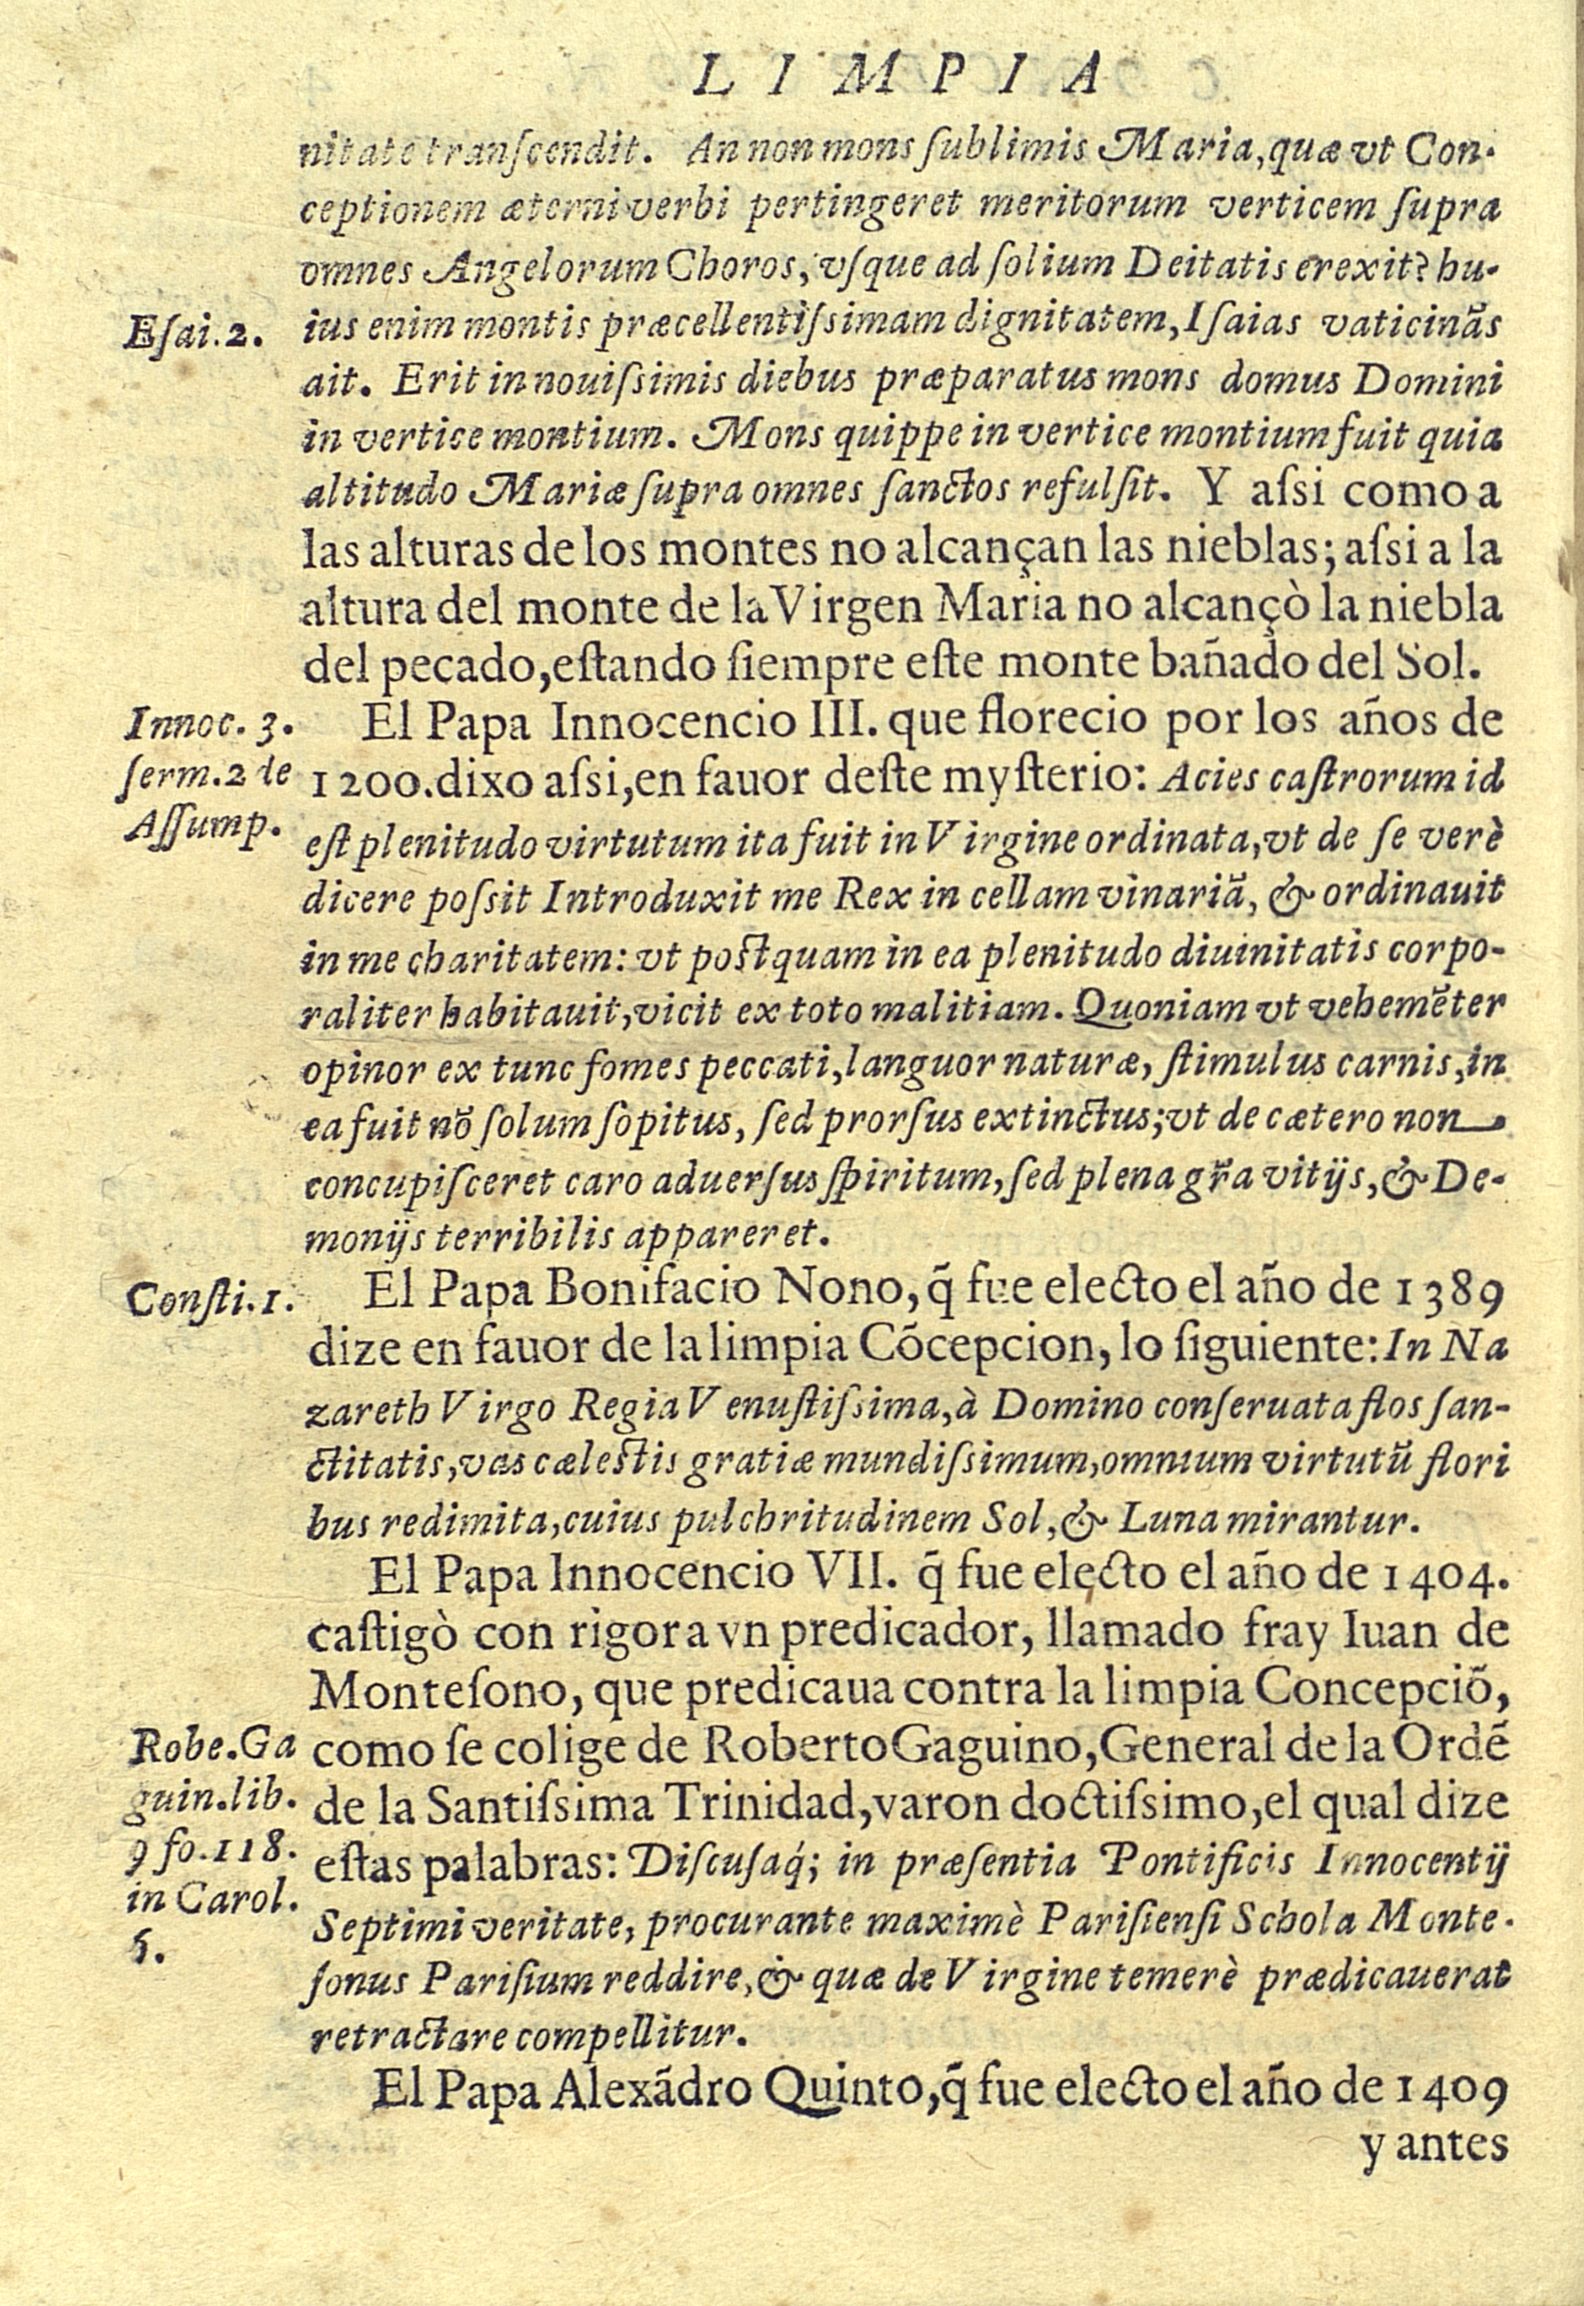 LIMPIA
nitate tranſcendit. An non mons ſublimis Maria, quæ vt Con-
ceptionem æterni verbi pertingeret meritorum verticem ſupra
omnes Angelorum Choros, vſque ad ſolium Deitatis erexit? hu-
Eſai.2.
ius enim montis præcellentiſsimam dignitatem, Iſaias vaticinãs
ait. Erit in nouiſsimis diebus præparatus mons domus Domini
in vertice montium. Mons quippe in vertice montium fuit quia
altitudo Mariæ ſupra omnes ſanctos refulſit. Y aſsi como a
las alturas de los montes no alcançan las nieblas; aſsi a la
altura del monte de la Virgen Maria no alcançò la niebla
del pecado, eſtando ſiempre eſte monte bañado del Sol.
Innoc. 3.
ſerm.2 de
Aſſump.
El Papa Innocencio III. que florecio por los años de
1200. dixo aſsi, en fauor deſte myſterio: Acies caſtrorum id
eſt plenitudo virtutum ita fuit in Virgine ordinata, vt de ſe verè
dicere poſsit Introduxit me Rex in cellam vinariã, & ordinauit
in me charitatem: vt poſtquam in ea plenitudo diuinitatis corpo-
raliter habitauit, vicit ex toto malitiam. Quoniam vt vehemẽter
opinor ex tunc fomes peccati, languor naturæ, ſtimulus carnis, in
ea fuit nõ ſolum ſopitus, ſed prorſus extinctus; vt de cætero non
concupiſceret caro aduerſus ſpiritum, ſed plena gr̃a vitijs, & De-
monijs terribilis appareret.
Conſti.1.
El Papa Bonifacio Nono, q̃ fue electo el año de 1389
dize en fauor de la limpia Cõcepcion, lo ſiguiente: In Na
zareth Virgo Regia Venuſtiſsima, à Domino conſeruata flos ſan-
ctitatis, vas cæleſtis gratiæ mundiſsimum, omnium virtutũ flori
bus redimita, cuius pulchritudinem Sol, & Luna mirantur.
El Papa Innocencio VII. q̃ fue electo el año de 1404.
caſtigò con rigor a vn predicador, llamado fray Iuan de
Monteſono, que predicaua contra la limpia Concepciõ,
Robe.Ga
guin.lib.
9 fo.118.
in Carol.
5.
como ſe colige de Roberto Gaguino, General de la Ordẽ
de la Santiſsima Trinidad, varon doctiſsimo, el qual dize
eſtas palabras: Diſcuſaq́; in præſentia Pontificis Innocentij
Septimi veritate, procurante maximè Pariſienſi Schola Monte-
ſonus Pariſium reddire, & quæ de Virgine temerè prædicauerat
retractare compellitur.
El Papa Alexãdro Quinto, q̃ fue electo el año de 1409
y antes